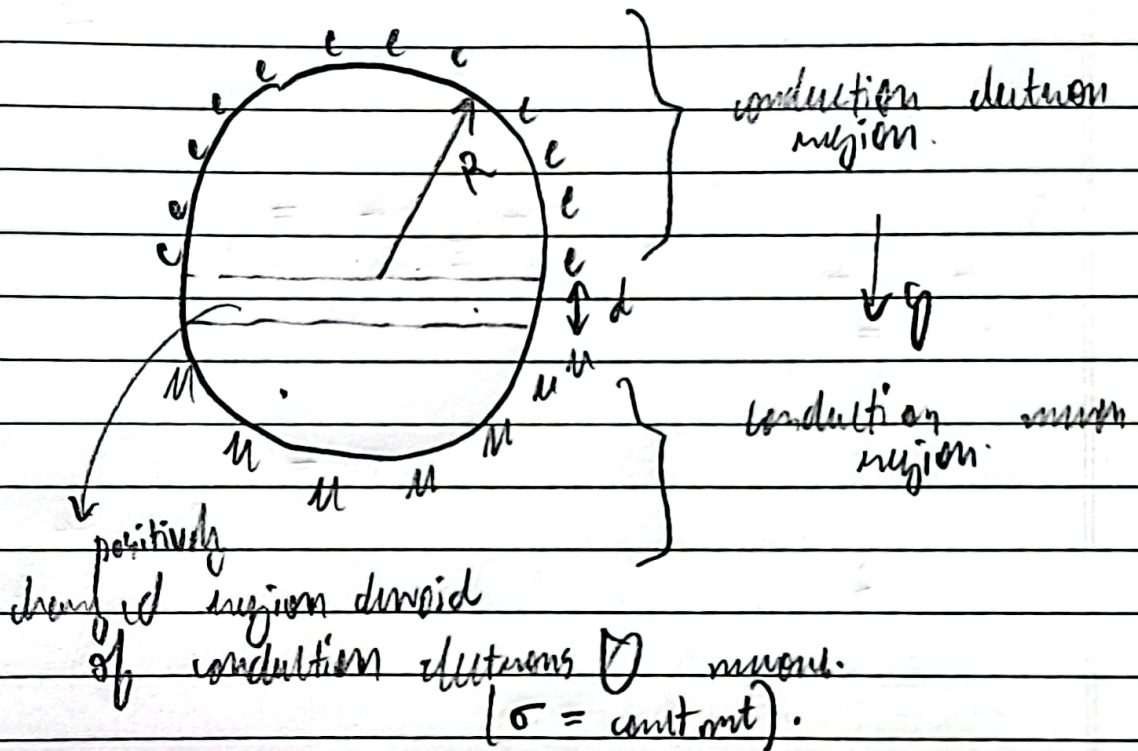 e e e
e e
e e
e e
e e
e e
R
d
g
μ μ μ
μ μ
μ μ
conduction electron
region.
conduction muon
region.
positively
charged region devoid
of conduction electrons muons.
(σ = constant).